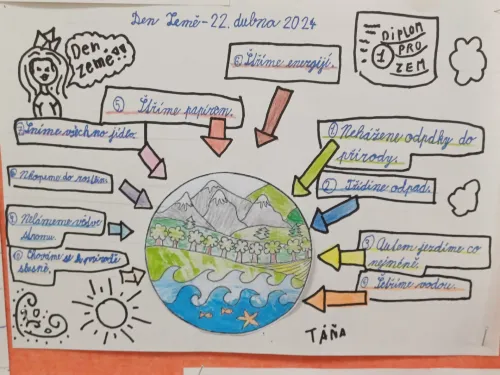 Den Země - 22. dubna 2024
Den
země!!
DIPLOM
1 PRO
ZEM
6 Šetříme energií.
5 Šetříme papírem.
7 Sníme všechno jídlo.
1 Neházíme odpadky do
přírody.
8 Nkopeme do rostlin.
2 Třídíme odpad.
9 Nelámeme větve
stromu.
3 Autem jezdíme co
nejméně.
10 Chováme se k přírodě
slušně.
4 Šetříme vodou.
TÁŇA